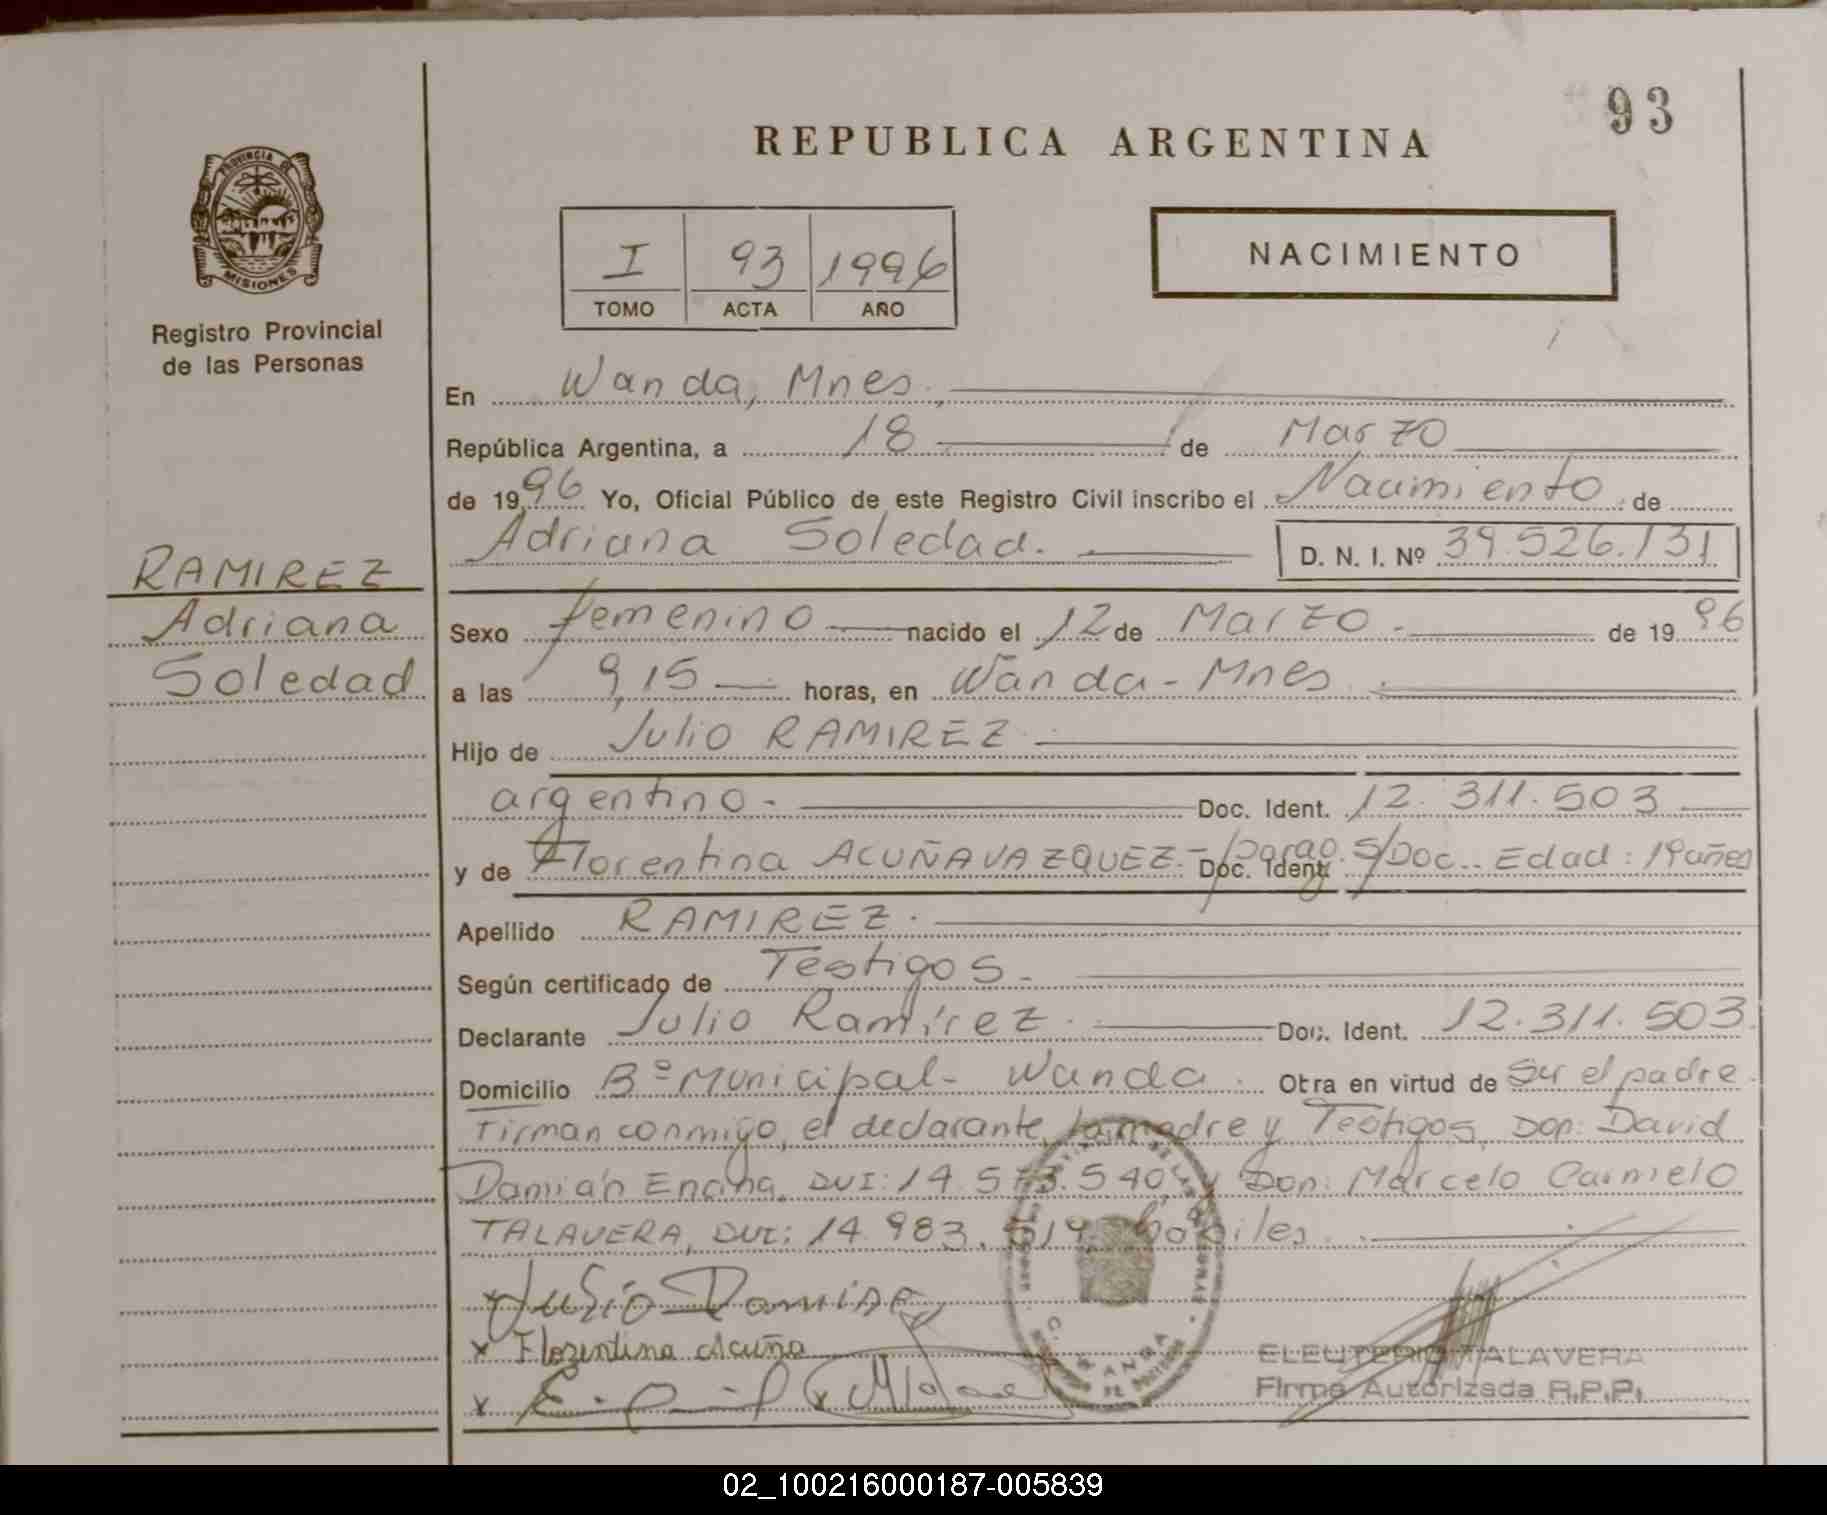 93
REPUBLICA ARGENTINA
PROVINCIA DE
MISIONES
Registro Provincial
de las Personas
I 93 1996
TOMO ACTA AÑO
NACIMIENTO
En Wanda, Mnes.
República Argentina, a 18 de Marzo
de 1996 Yo, Oficial Público de este Registro Civil inscribo el Nacimiento de
Adriana Soledad. D. N. I. Nº 39.526.131
RAMIREZ
Adriana
Soledad
Sexo femenino nacido el 12 de Marzo. de 1996
a las 9,15 horas, en Wanda - Mnes.
Hijo de Julio RAMIREZ.
argentino. Doc. Ident. 12.311.503
y de Florentina ACUÑA VAZQUEZ.- parag. Doc. Ident. S/Doc.. Edad: 19 años
Apellido RAMIREZ.
Según certificado de Testigos.
Declarante Julio Ramírez. Doc. Ident. 12.311.503.
Domicilio Bº Municipal - Wanda. Otra en virtud de ser el padre.
Firman conmigo, el declarante, la madre y Testigos, Don: David
Damián Encina, DUI: 14.573.540, y Don: Marcelo Carmelo
TALAVERA, DUI: 14.983.519. hábiles.
x Julio Ramirez
x Florentina Acuña
x x
WANDA
ELEUTERIO TALAVERA
Firma Autorizada R.P.P.
02_100216000187-005839